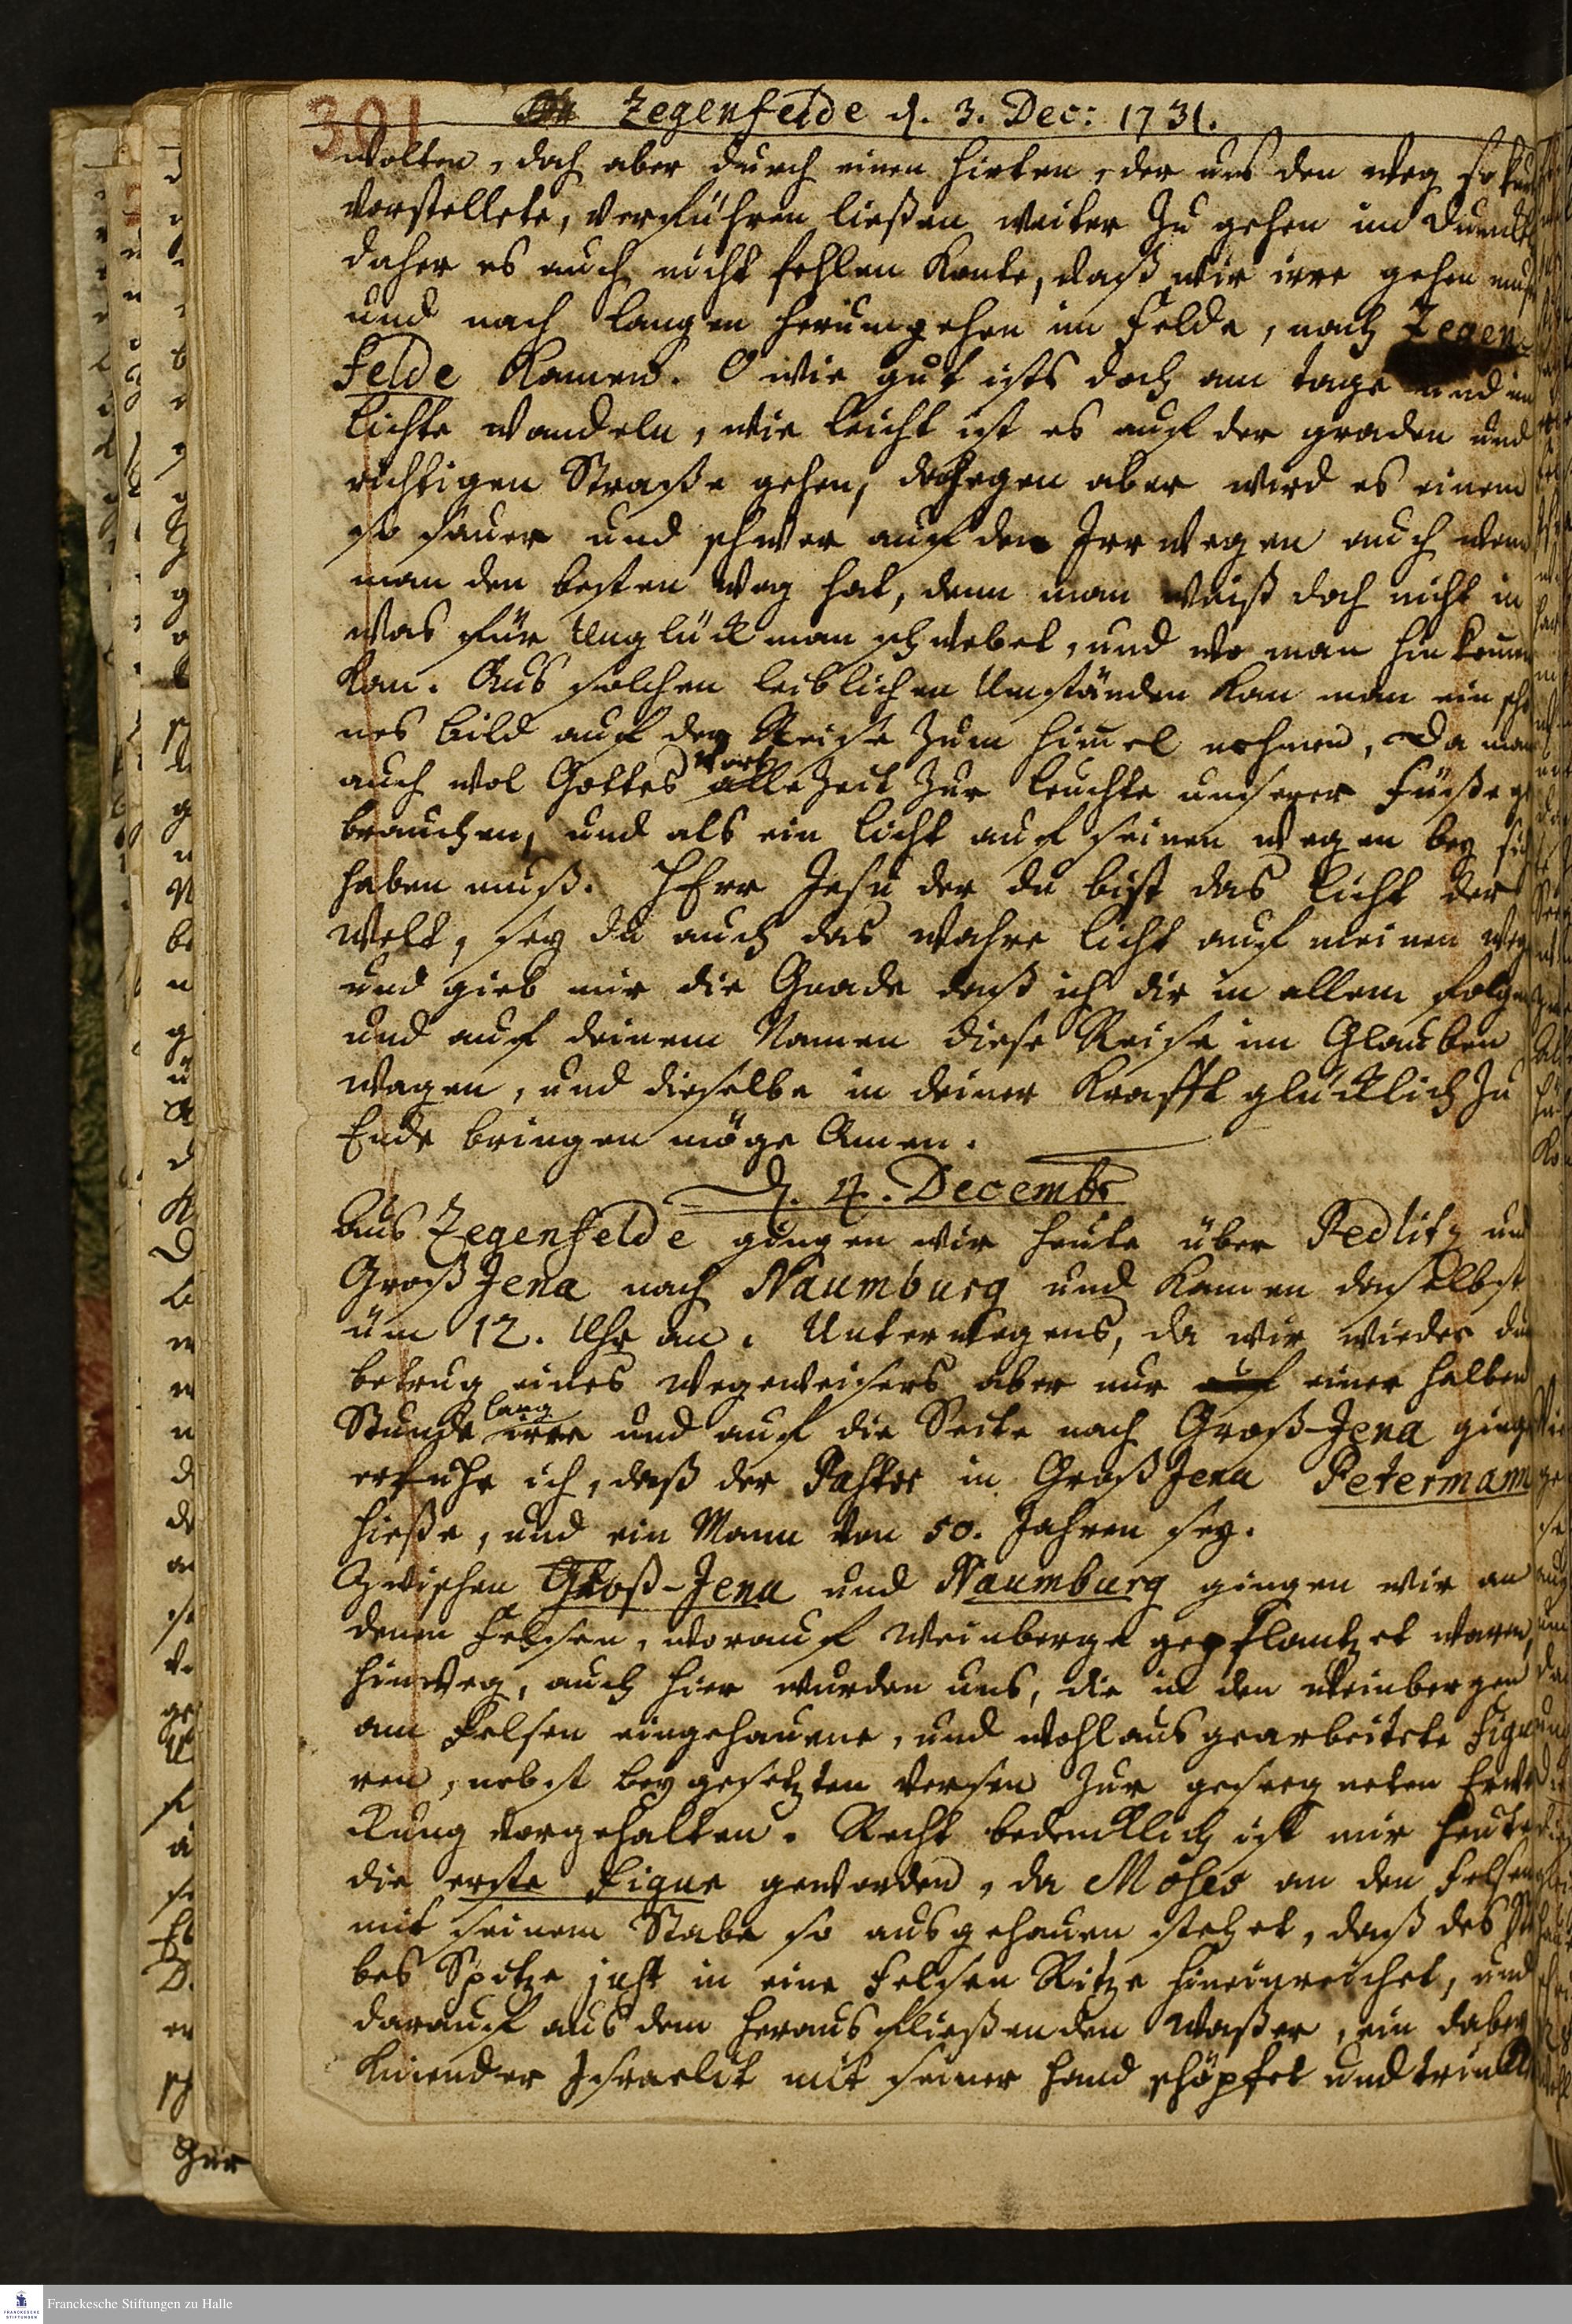 301
Zegenfelde d. 3. Dec: 1731.
wolten, doch aber durch einen Hirten, der uns den Weg so kurtz
vorstellete, verführen ließen weiter zu gehen im Dunckel
daher es auch nicht fehlen konte, daß wir irre gehen must
und nach langen herumgehen im Felde, nach Zegen-
felde kamen. O wie gut ists doch am tage und im
Lichte wandeln, wie leicht ist es auf der graden und
richtigen Straße gehen, dahegen aber wird es einem
so sauer und schwer auf den Irrwegen auch wenn
man den besten Weg hat, denn man weiß doch nicht in
was für Unglück man schwebet, und wo man hin kommen
kan. Aus solchen leiblichen Umständen kan man ein schö
nes Bild auf der Reise zum Himmel nehmen, Da man
auch wol Gottes Wort allezeit zur Leuchte unserer Füße ge
brauchen, und als ein Licht auf seinen Wegen bey sich
haben muß. HErr Jesu der du bist das Licht der
Welt, sey du auch das wahre Licht auf meinen Weg
und gieb mir die Gnade daß ich dir in allem folgen
und auf deinem Namen diese Reise im Glauben
wagen, und dieselbe in deiner Krafft glücklich zu
Ende bringen möge Amen.
D. 4. Decembr
Aus Zegenfelde gingen wir heute über Pedlitz und
Groß Jena nach Naumburg und kamen daselbst
üm 12. Uhr an. Unterwegens, da wir wieder du
betrug eines Wegeweisers aber nur auf einer halben
Stunde lang irre und auf die Seite nach Groß-Jena ginge
erfuhr ich, daß der Pastor in Groß Jena Petermann
hieße, und ein Mann von 50. Jahren sey.
Zwischen Groß-Jena und Naumburg gingen wir an
denen Felsen, worauf Weinberge gepflantzet waren,
hinweg, auch hier wurden uns, die in den Weinbergen
am Felsen eingehauene, und wohl ausgearbeitete Figu
ren, nebst beygesetzten Versen zur geseegneten Erwe
ckung vorgehalten. Recht bedencklich ist mir heute
die erste Figur geworden, da Moses an den Felsen
mit seinem Stabe so ausgehauen stehet, daß des Sta
bes Spitze just in eine Felsen Ritze hineinreichet, und
darauf aus dem herausfließenden Waßer, ein dabey
kniender Israelit mit seiner Hand schöpfet und trincket
Franckesche Stiftungen zu Halle